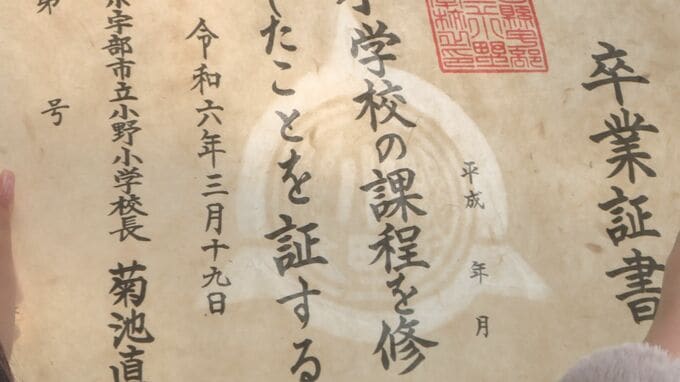 卒業証書
平成 年 月
小学校の課程を修
したことを証する
令和六年三月十九日
宇部市立小野小学校長 菊池直
第 号